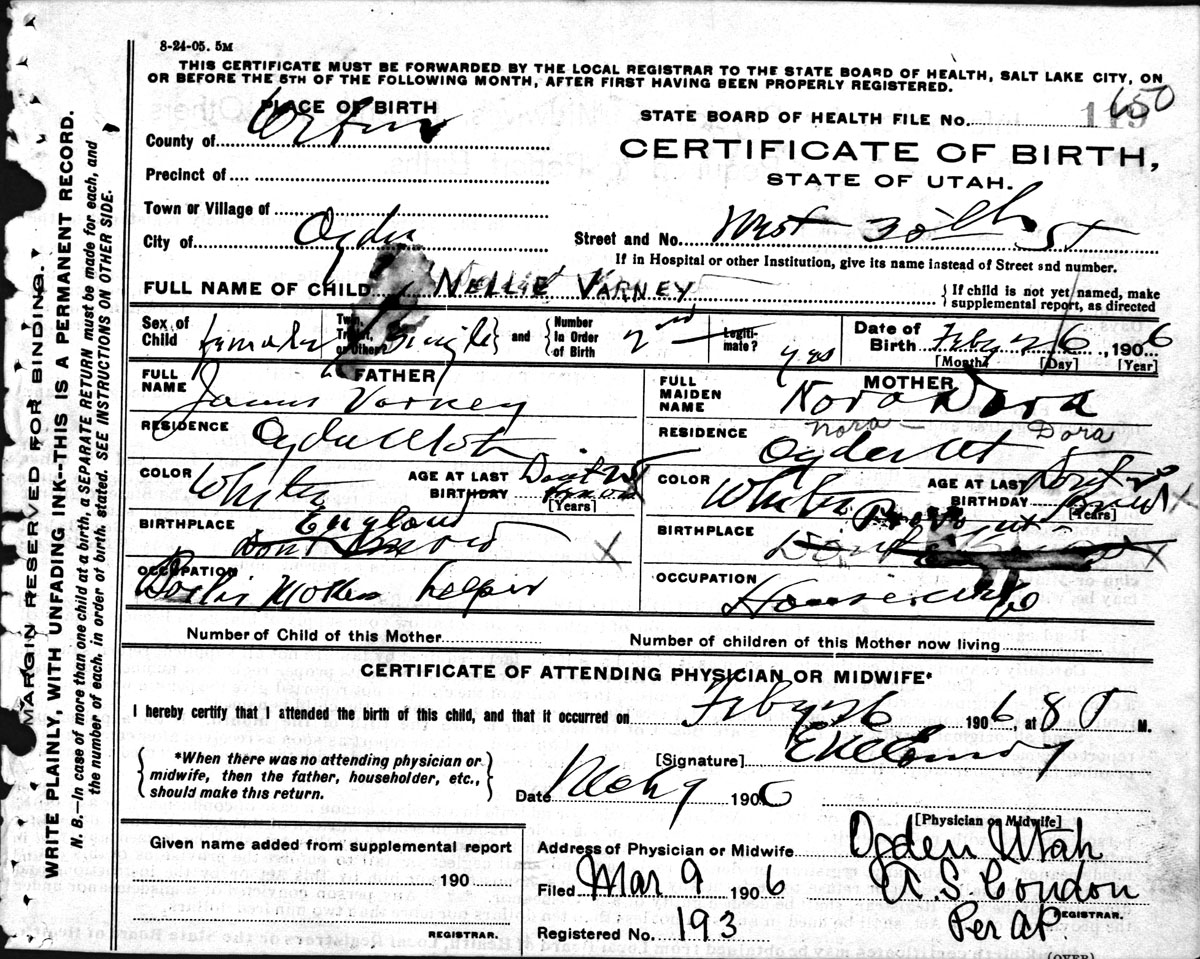 8-24-05. 5M
THIS CERTIFICATE MUST BE FORWARDED BY THE LOCAL REGISTRAR TO THE STATE BOARD OF HEALTH, SALT LAKE CITY, ON
OR BEFORE THE 5TH OF THE FOLLOWING MONTH, AFTER FIRST HAVING BEEN PROPERLY REGISTERED.
PLACE OF BIRTH
STATE BOARD OF HEALTH FILE No. 119 650
County of
CERTIFICATE OF BIRTH,
Precinct of
STATE OF UTAH.
Town or Village of
City of Ogden
Street and No. West 30th St
If in Hospital or other Institution, give its name instead of Street and number.
FULL NAME OF CHILD NELLIE VARNEY
{ If child is not yet named, make
supplemental report, as directed
Sex of Child female Twin, Triplet, or Other? Single } and { Number In Order of Birth 2nd Legiti-mate? yes Date of Birth Feby 26, 1906
[Month] [Day] [Year]
FULL NAME FATHER James Varney
FULL MAIDEN NAME MOTHER Nora Dora
Nora Dora
RESIDENCE Ogden Utah
RESIDENCE Ogden Ut
COLOR White AGE AT LAST BIRTHDAY Dont
[Years]
COLOR White AGE AT LAST BIRTHDAY Dont
[Years]
BIRTHPLACE England
Dont Know
BIRTHPLACE
OCCUPATION Boiler Makers helper
OCCUPATION Housewife
Number of Child of this Mother
Number of children of this Mother now living
CERTIFICATE OF ATTENDING PHYSICIAN OR MIDWIFE*
I hereby certify that I attended the birth of this child, and that it occurred on Feby 26 1906, at 8 M.
*When there was no attending physician or
midwife, then the father, householder, etc.,
should make this return.
[Signature]
Date 1906
[Physician or Midwife]
Given name added from supplemental report
190
REGISTRAR.
Address of Physician or Midwife Ogden Utah
Filed Mar 9 1906 S Condon
REGISTRAR.
Registered No. 193 Per AP
(OVER)
MARGIN RESERVED FOR BINDING.
WRITE PLAINLY, WITH UNFADING INK--THIS IS A PERMANENT RECORD.
N. B.—In case of more than one child at a birth, a SEPARATE RETURN must be made for each, and
the number of each, in order of birth, stated. SEE INSTRUCTIONS ON OTHER SIDE.